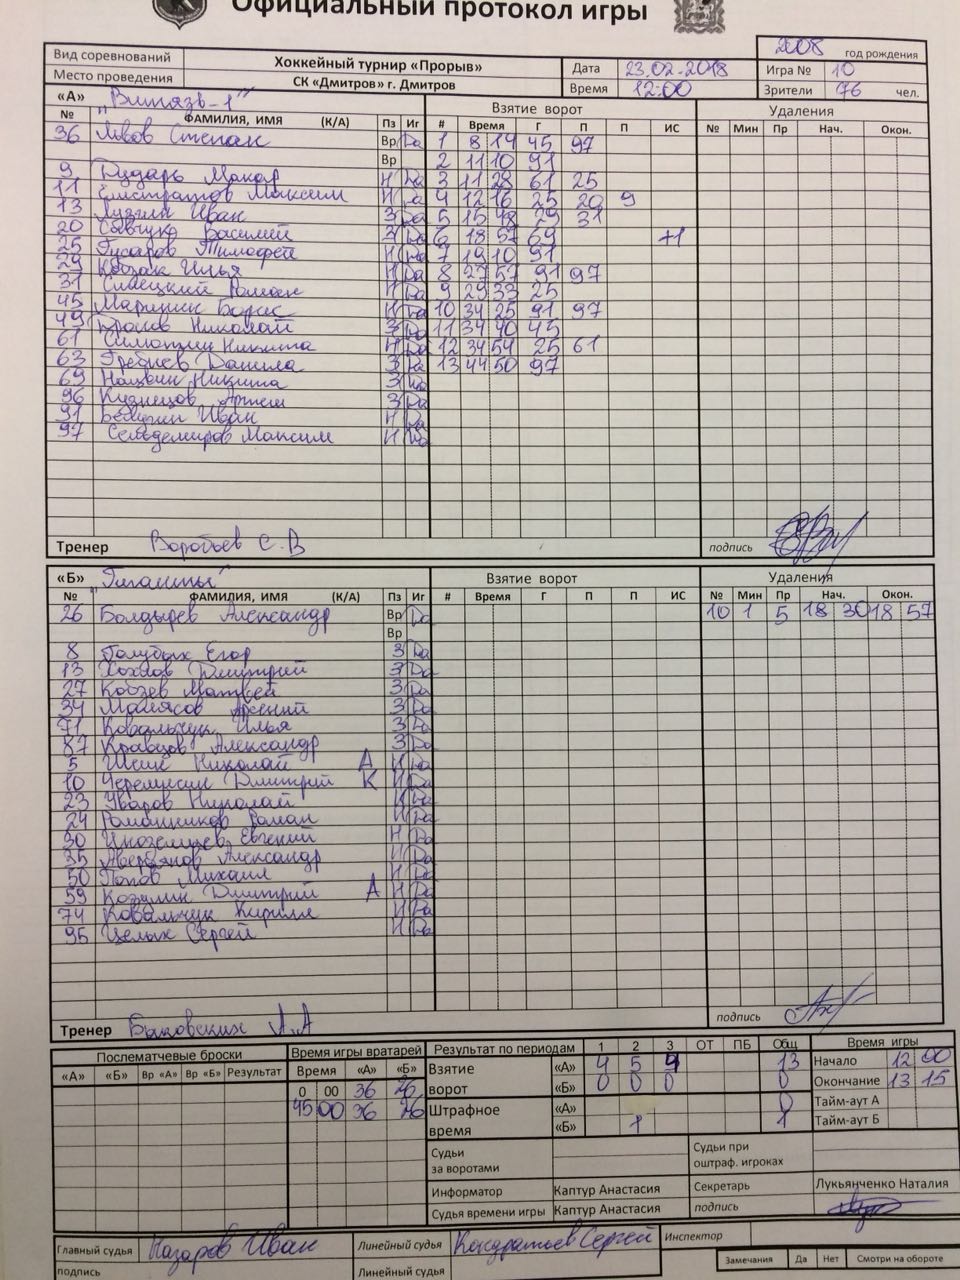 Официальный протокол игры
2008 год рождения
Вид соревнований Хоккейный турнир «Прорыв» Дата 23.02.2018 Игра № 10
Место проведения СК «Дмитров» г. Дмитров Время 12:00 Зрители 76 чел.
«А» "Витязь-1" Взятие ворот Удаления
№ ФАМИЛИЯ, ИМЯ (К/А) Пз Иг # Время Г П П ИС № Мин Пр Нач. Окон.
36 Львов Степан Вр Да 1 8 14 45 97
Вр 2 11 10 91
9 Бударь Макар Н Да 3 11 28 61 25
11 Емстратов Максим Н Да 4 12 16 25 20 9
13 Лузгин Иван З Да 5 15 48 29 31
20 Савчук Василий З Да 6 18 57 69 +1
25 Гусаров Тимофей Н Да 7 19 10 91
29 Козак Илья Н Да 8 27 57 91 97
31 Роман Н Да 9 29 33 25
45 Маринин Борис Н Да 10 34 25 91 97
49 Николай З Да 11 34 40 45
61 Симонкин Никита Н Да 12 34 54 25 61
63 Гребнев Данила З Да 13 44 50 97
69 Никита З Да
96 Кузнецов Артем З Да
91 Иван Н Да
97 Сельдемиров Максим Н Да
Тренер Воробьев С.В подпись
«Б» "Гиганты" Взятие ворот Удаления
№ ФАМИЛИЯ, ИМЯ (К/А) Пз Иг # Время Г П П ИС № Мин Пр Нач. Окон.
26 Болдырев Александр Вр Да 10 1 5 18 30 18 57
Вр
8 Голубых Егор З Да
13 Хохлов Дмитрий З Да
27 Кобзев Матвей З Да
34 Малясов Арсений З Да
71 Ковальчук Илья З Да
87 Кравцов Александр З Да
5 Николай А Н Да
10 Черемисин Дмитрий К Н Да
23 Уваров Николай Н Да
24 Романников Роман Н Да
30 Иноземцев Евгений Н Да
35 Аверьянов Александр Н Да
50 Попов Михаил Н Да
59 Козулин Дмитрий А Н Да
74 Ковальчук Кирилл Н Да
95 Целых Сергей Н Да
Тренер Баковских А.А подпись
Послематчевые броски Время игры вратарей Результат по периодам 1 2 3 ОТ ПБ Общ Время игры
«А» «Б» Вр «А» Вр «Б» Результат Время «А» «Б» Взятие ворот «А» 4 5 4 13 Начало 12 00
0 00 36 26 «Б» 0 0 0 0 Окончание 13 15
45 00 36 26 Штрафное время «А» 0 Тайм-аут А
«Б» 1 1 Тайм-аут Б
Судьи за воротами Судьи при оштраф. игроках
Информатор Каптур Анастасия Секретарь Лукьянченко Наталия
Судья времени игры Каптур Анастасия подпись
Главный судья Назаров Иван Линейный судья Кондратьев Сергей Инспектор
подпись Линейный судья Замечания Да Нет Смотри на обороте